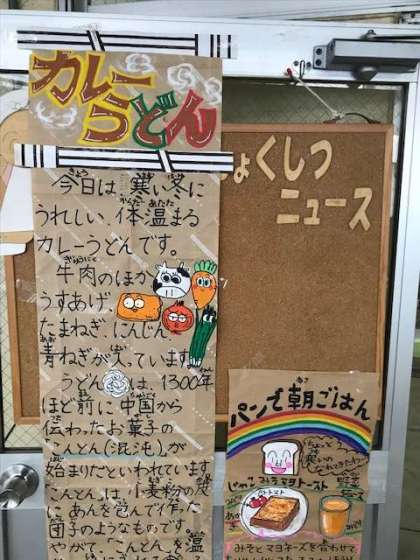 カレー
うどん
今日は、寒い冬に
うれしい、体温まる
カレーうどんです。
牛肉のほか
うすあげ、
たまねぎ、にんじん、
青ねぎが入っています。
うどんは、1300年
ほど前に中国から
伝わったお菓子の
「こんとん(混沌)」が
始まりだといわれています
こんとんは、小麦粉の皮
にあんを包んで作った
団子のようなものです。
やがて「こんとん」を温
しょくしつ
ニュース
パンで朝ごはん
じゃこみそマヨトースト
みそとマヨネーズを合わせて